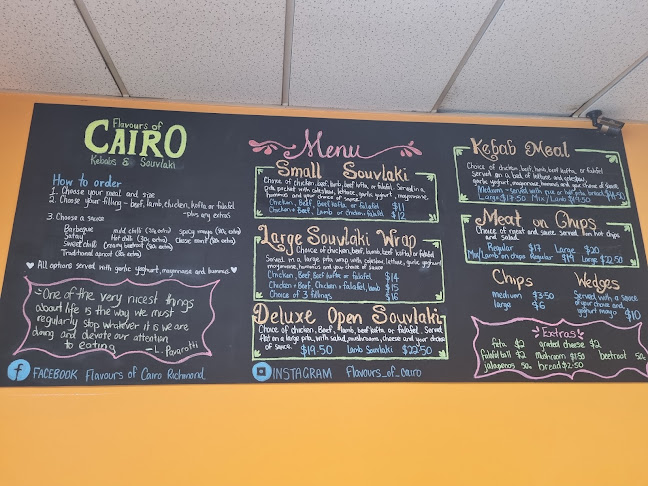 Flavours of
CAIRO
Kebabs & Souvlaki
How to order
1. Choose your meal and size
2. Choose your filling - beef, lamb, chicken, kofta or falafel
- plus any extras
3. Choose a sauce
Barbeque mild chilli (30c extra) spicy mayo (30c extra)
Satay Hot chilli (30c extra)
Sweet chilli
Traditional apricot
All options served with garlic yoghurt, mayonnaise and hummus.
One of the very nicest things
about life is the way we must
regularly stop whatever it is we are
doing and devote our attention
to eating
- L. Pavarotti
FACEBOOK Flavours of Cairo Richmond
Menu
Small Souvlaki
Choice of chicken, beef, lamb, beef kofta, or falafel. Served in a
pita pocket with coleslaw, lettuce, garlic yogurt, mayonnaise,
hummus and your choice of sauce.
Chicken, Beef, Beef kofta or falafel $11
Chicken + Beef, Lamb or chicken falafel $12
Large Souvlaki Wrap
Choice of chicken, beef, lamb, beef kofta or falafel
Served in a large pita wrap with coleslaw, lettuce, garlic yoghurt
mayonnaise, hummus and your choice of sauce
Chicken, Beef, Beef kofta or falafel $14
Chicken + Beef, Chicken + falafel, lamb $15
Choice of 3 fillings $16
Deluxe Open Souvlaki
Choice of chicken, Beef, lamb, beef kofta, or falafel. Served
flat on a large pita, with salad, mushrooms, cheese and your choice
of sauce. $19.50 Lamb Souvlaki $22.50
INSTAGRAM flavours_of_cairo
Kebab Meal
Choice of chicken, beef, lamb, beef kofta, or falafel
Served on a bed of lettuce and coleslaw,
garlic yoghurt, mayonnaise, hummus and your choice of sauce
Medium - served with rice or hot pita bread
Large $17.50 Mix/Lamb $19.50
Meat on Chips
Choice of meat and sauce served on hot chips
and salad
Regular $17 Large $20
Mix/Lamb on chips Regular $19 Large $22.50
Chips
medium $3.50
large $6
Wedges
Served with a sauce
of your choice and
yoghurt mayo $10
Extras
feta $2 grated cheese $2
falafel ball $2 mushroom $1.50 beetroot 50c
jalapenos 50c bread $2.50